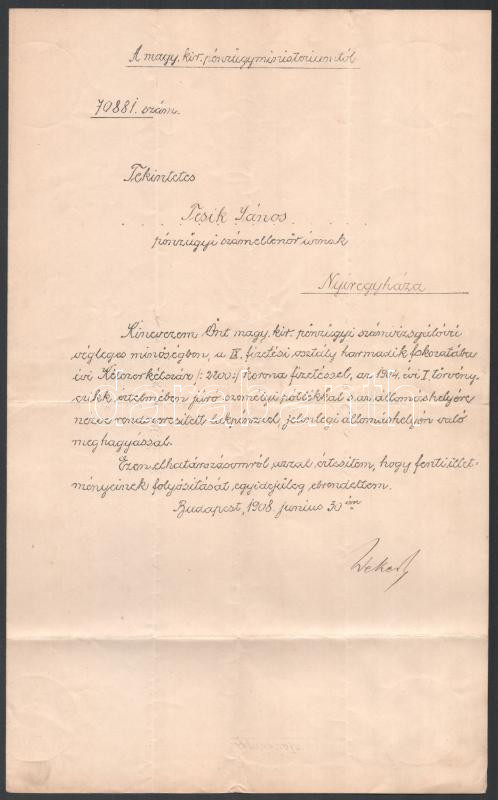 A magy. kir. pénzügyministeriumtól
70881. szám.
Tekintetes
Tesik János
pénzügyi számellenőr úrnak
Nyiregyháza
Kinevezem Önt magy. kir. pénzügyi számvizsgálóvá
végleges minőségben, a IX. fizetési osztály harmadik fokozatába
évi Kétezerkétszáz /:2200:/ korona fizetéssel, az 1904. évi I. törvény-
czikk értelmében járó személyi pótlékkal s az állomáshelyére
nézve rendszeresitett lakpénzzel, jelenlegi állomáshelyén való
meghagyással.
Ezen elhatározásomról azzal értesitem, hogy fenti illet-
ményeinek folyósitását egyidejüleg elrendeltem.
Budapest, 1908. junius 30 án
Wekerle